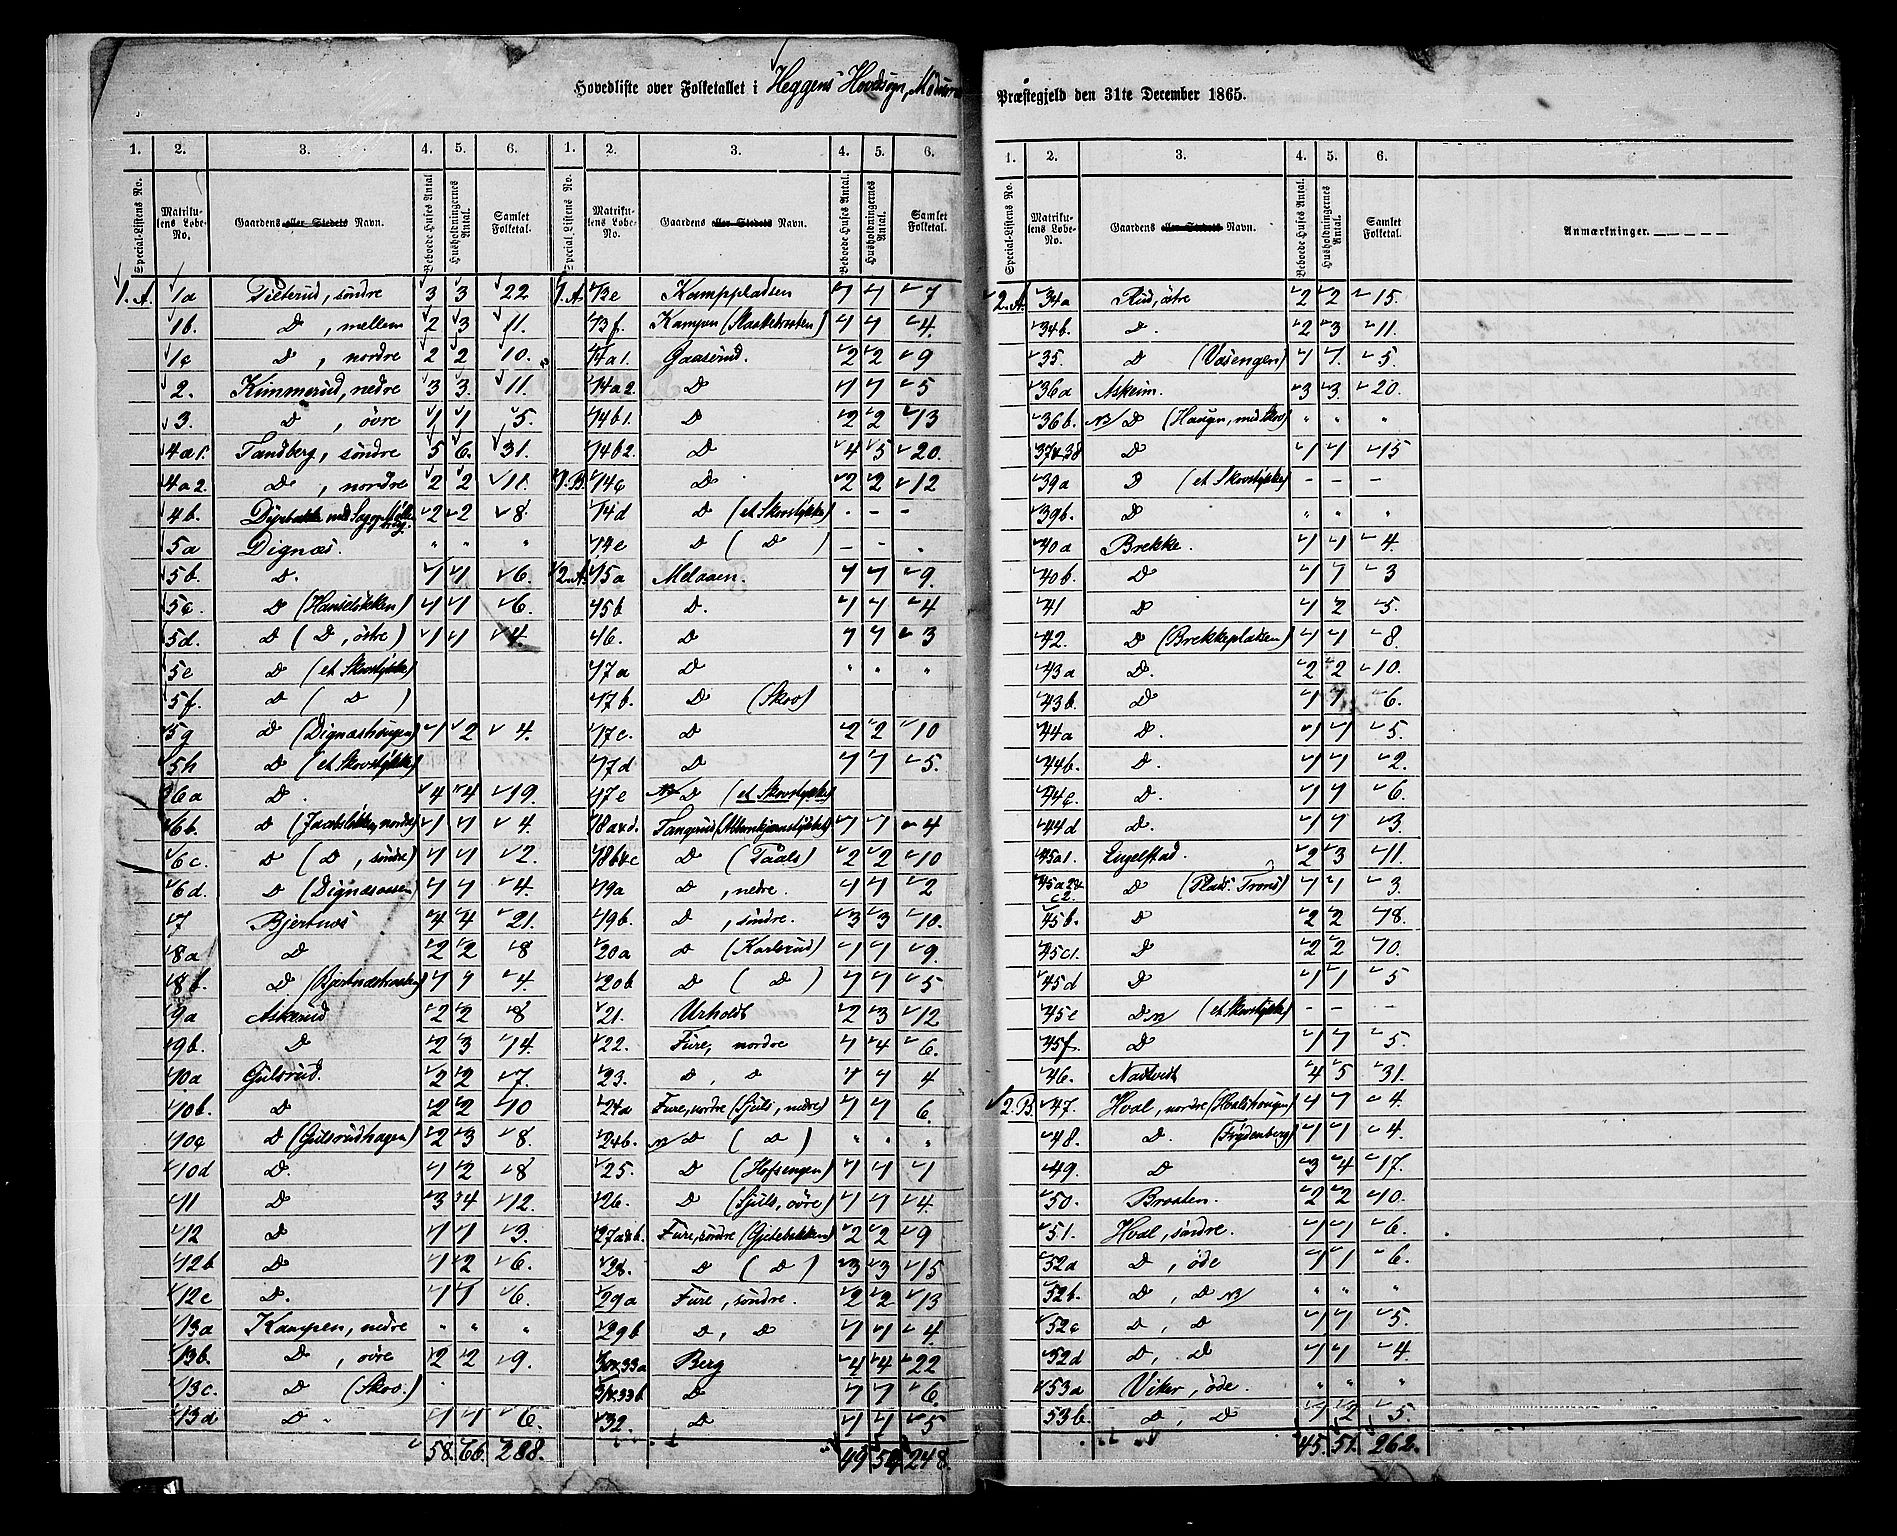 Hovedliste over Folketallet i Heggens Hovedsogn, Modums Præstegjeld den 31te December 1865.
1. 2. 3. 4. 5. 6. 1. 2. 3. 4. 5. 6.
Special-Listens No. Matrikulens Løbe-No. Gaardens eller Stedets Navn. Beboede Huses Antal. Husholdningernes Antal. Samlet Folketal. Special-Listens No. Matrikulens Løbe-No. Gaardens eller Stedets Navn. Beboede Huses Antal. Husholdningernes Antal. Samlet Folketal.
1.A. 1a Tilterud, søndre 3 3 22
1b. D , mellem 2 3 11.
1c D , nordre 2 2 10.
2. Kimmerud, nedre 3 3. 11.
3. D , øvre 1 1 5.
4a1. Tandberg, søndre 5 6. 31.
4a2. D , nordre 2 2 11.
4b. med Sag og 2 2 8.
5a Dignæs. " " "
5b. D. 1 1 6.
5c. D (Hanseløkken) 1 1 6.
5d. D ( D , østre ) 1 1 4.
5e D (et Skovstykke)
5f. D ( D )
5g D (Dignæshaugen) 1 2 4.
5h D (et Skovstykke)
6a D. 4 4 19.
6b. D (Jacobsløkken, nordre) 1 1 4.
6c. D ( D , søndre) 1 1 2.
6d. D (Dignæsaasen) 1 1 4.
7 Bjertnæs 4 4 21.
8a D 2 2 8
8b. D (Bjertnæsbraaten) 1 1 4.
9a Askerud 2 2 8
9b. D 2 3 14.
10a Gulsrud. 2 2 7.
10b. D 2 2 10
10c D (Gulsrudhagen) 2 3 8.
10d D. 1 2 8
11 D 3 4 12.
12 D 1 1 3.
12b D 1 2 6.
12c D. 1 1 6.
13a Kampen, nedre " " "
13b. D , øvre 2 2 9.
13c. D (Skov.)
13d D 1 1 6.
58. 66. 288.
1.A 13e Kamppladsen 1 1 7
13f. Kampen 1 1 4.
14a1. Gaaserud. 2 2 9
14a2. D 1 1 5
14b1. D 2 2 13
14b2. D 4 5 20.
1.B. 14c D 2 2 12
14d D (et Skovstykke) - - -
14e D ( D ) - - .
2.A. 15a Melaaen. 1 1 9.
15b D. 1 1 4
16. D 1 1 3
17a D " " "
17b. D (Skov)
17c. D 2 2 10
17d D 1 1 5.
17e NB D (et Skovstykke)
18a&d. Tangerud 1 1 4
18b&c D (Taals) 2 2 10
19a D , nedre. 1 1 2
19b. D , søndre. 3 3 10.
20a D (Karlsrud) 1 1 9.
20b D ( D ) 1 1 5
21. Urholdt 2 3 12
22. Fure, nordre 1 4 6.
23. D , D 1 1 4
24a Fure, nordre (Sjuls, nedre) 1 1 6.
24b. NB D ( D ) " " "
25. D (Hofsengen) 1 1 1
26. D (Sjuls, øvre) 1 1 4.
27a&b. Fure, søndre (Gjetebakken) 2 2 9
28. D ( D ) 3 3 15
29a Fure, søndre. 2 2 13
29b D , D 1 1 4.
30&33a Berg 4 4 22
31&33b D 1 1 6.
32. D 1 1 5
49 54 248.
1. 2. 3. 4. 5. 6.
Special-Listens No. Matrikulens Løbe-No. Gaardens eller Stedets Navn. Beboede Huses Antal. Husholdningernes Antal. Samlet Folketal. Anmærkninger.
2.A. 34a Rud, østre 2 2 15.
34b. D. 2 3 11.
35. D (Vasengen) 1 1. 5.
36a Askeim. 3 3. 20.
36b. NB D (Haugen, med Skov) " " "
37&38 D 1 1 15
39a D (et Skovstykke) - - -
39b. D " " "
40a Brekke. 1 1 4.
40b. D 1 1 3
41 D 1 2 5.
42. D (Brekkepladsen) 1 1 8
43a D. 2 2 10.
43b. D 1 1 6.
44a D. 1 1 5.
44b. D. 1 1 2.
44c. D. 1 1 6.
44d D. 1 1 3.
45a1. Engelstad. 2 3 11.
45a2& c2. D (Plads: Trons) 1 1 3.
45b. D 2 2 18.
45c1. D 2 2 10.
45d D 1 1 5
45e D NB (et Skovstykke) - - -
45f. D 1 1 5.
46. Nadvedt 4 5 31.
2.B. 47. Hval, nordre (Hvalshaugen) 1 1 4.
48. D. (Frydenberg) 1 1 4.
49. D 3 4 17.
50. Braaten. 2 2 10.
51. Hval, søndre. 1 1 6.
52a D , øde 1 1 6.
52b. D , D NB " " "
52c D , D 1 1 5.
52d D , D 1 1 4.
53a Viker, øde. " " "
53b. D , D 1 2 5.
45. 51. 262.